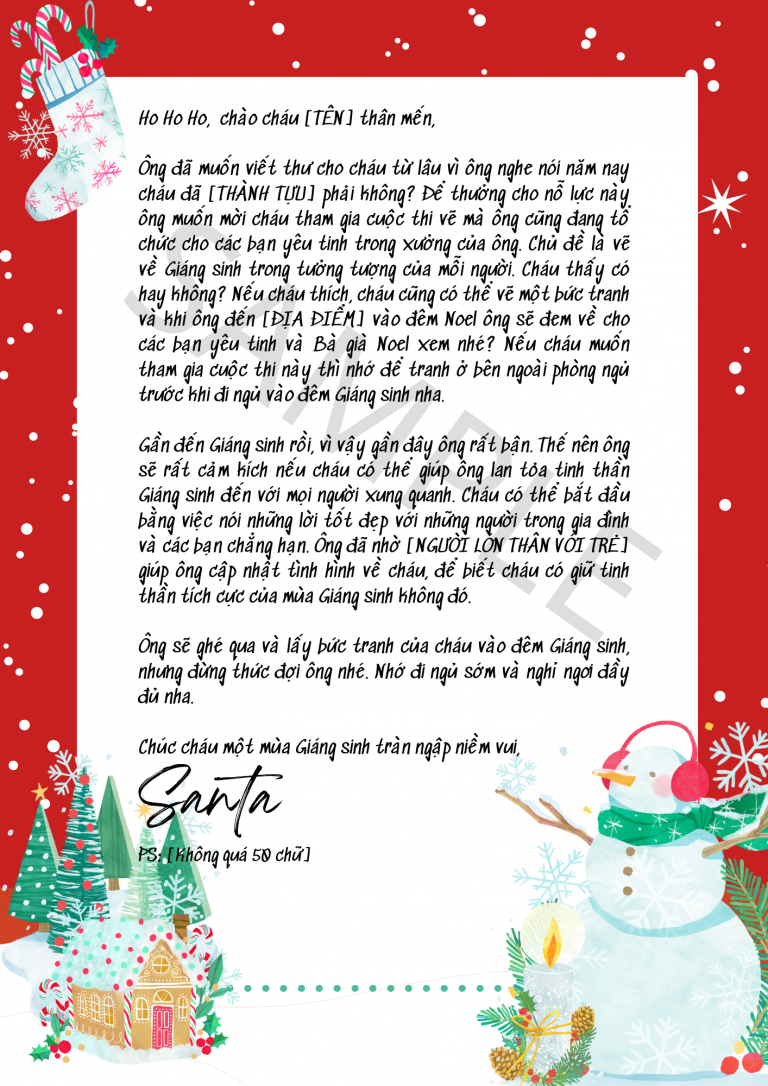 Ho Ho Ho, chào cháu [TÊN] thân mến,
Ông đã muốn viết thư cho cháu từ lâu vì ông nghe nói năm nay
cháu đã [THÀNH TỰU] phải không? Để thưởng cho nỗ lực này,
ông muốn mời cháu tham gia cuộc thi vẽ mà ông cũng đang tổ
chức cho các bạn yêu tinh trong xưởng của ông. Chủ đề là vẽ
về Giáng sinh trong tưởng tượng của mỗi người. Cháu thấy có
hay không? Nếu cháu thích, cháu cũng có thể vẽ một bức tranh
và khi ông đến [ĐỊA ĐIỂM] vào đêm Noel ông sẽ đem về cho
các bạn yêu tinh và Bà già Noel xem nhé? Nếu cháu muốn
tham gia cuộc thi này thì nhớ để tranh ở bên ngoài phòng ngủ
trước khi đi ngủ vào đêm Giáng sinh nha.
Gần đến Giáng sinh rồi, vì vậy gần đây ông rất bận. Thế nên ông
sẽ rất cảm kích nếu cháu có thể giúp ông lan tỏa tinh thần
Giáng sinh đến với mọi người xung quanh. Cháu có thể bắt đầu
bằng việc nói những lời tốt đẹp với những người trong gia đình
và các bạn chẳng hạn. Ông đã nhờ [NGƯỜI LỚN THÂN VỚI TRẺ]
giúp ông cập nhật tình hình về cháu, để biết cháu có giữ tinh
thần tích cực của mùa Giáng sinh không đó.
Ông sẽ ghé qua và lấy bức tranh của cháu vào đêm Giáng sinh,
nhưng đừng thức đợi ông nhé. Nhớ đi ngủ sớm và nghỉ ngơi đầy
đủ nha.
Chúc cháu một mùa Giáng sinh tràn ngập niềm vui,
Santa
PS: [Không quá 50 chữ]
SAMPLE